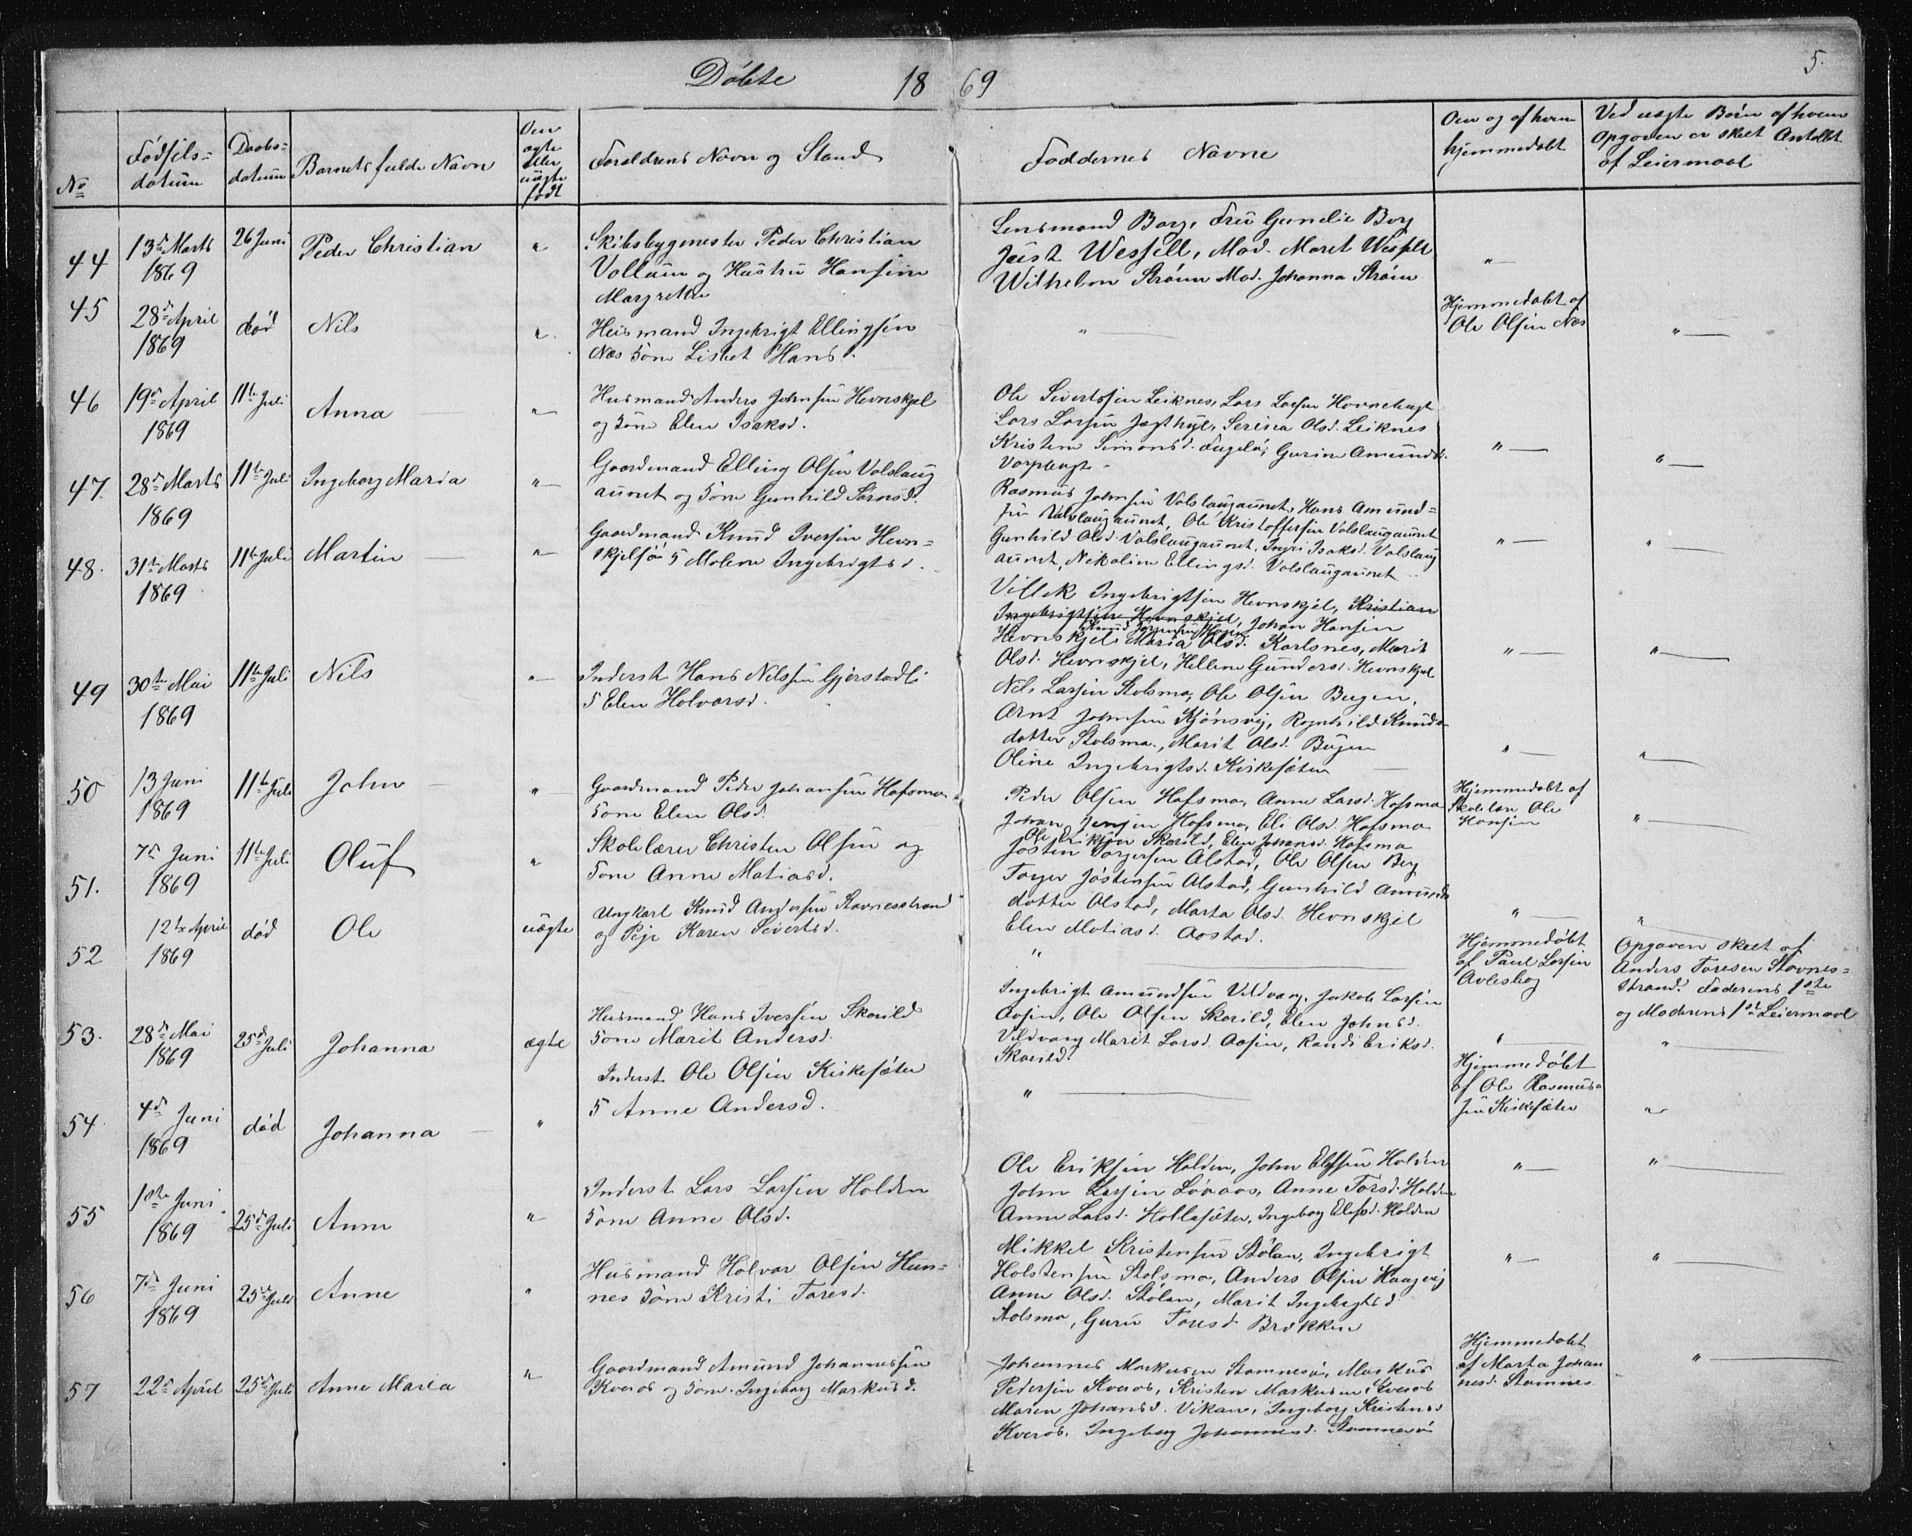 Döbte 1869
5.
No
Fødsels-
datum
Daabs-
datum
Barnets fulde Navn
Om
ægte
eller
uægte
født
Forældrens Navn og Stand
Faddernes Navne
Om og af hvem
hjemmedøbt
Ved uægte Børn af hvem
Opgaven er skeet Antallet
af Leiermaal
44
13de Marts
1869
26 Juni
Peder Christian
"
Skibsbygmester Peder Christian
Vollaun og Hustru Hansine
Margrethe
Lensmand Borg, Fru Gundie Borg
Just Wessell, Mad. Maret Wessel
Wilhelm Strøm Mad. Johanna Strøm
"
45
28de April
1869
død
Nils
"
Husmand Ingebrigt Ellingsen
Næs Kone Lisbet Hansd.
"
Hjemmedøbt af
Ole Olsen Næs
"
46
19de April
1869
11te Juli
Anna
"
Husmand Anders Johnsen Hevnskjel
og Kone Elen Isaksd.
Ole Sivertsen Leiknes, Lars Larsen Hovnehagt
Lars Larsen Jægthyl, Serina Olsd. Leiknes
Kristen Simonsd. Fugelø, Gurine Amundsd.
"
"
47.
28de Marts
1869
11te Juli
Ingeborg Maria
"
Gaardmand Elling Olsen Volslaug
aunet og Kone Gunhild Larsd.
Rasmus Johnsen Volslaugaunet, Hans Amund-
sen Volslaugaunet, Ole Kristoffersen Volslaugaunet
Gunhild Olsd. Volslaugaunet, Ingri Isaksd. Volslaug
aunet, Nikoline Ellingsd. Volslaugaunet
"
"
48.
31te Marts
1869
11te Juli
Martin
"
Gaardmand Knud Iversen Hevn-
skjelsøe K Malene Ingebrigtsd.
Villek Ingebrigtsen Hevnskjel, Kristian
Ingebrigtsen Hevnskjel, Johan Hansen
Hevnskjel, Maria Olsd. Karlsnes, Marit
Olsd. Hevnskjel, Helline Gundersd. Hevnskjel
"
"
49
30te Mai
1869
11te Juli
Nils
"
Inderst Hans Nilssen Gjerstadli
K Elen Holvarsd.
Nils Larsen Stolsmo, Ole Olsen Bugen,
Arnt Johnsen Kjønsvig, Ragnhild Knuds-
datter Stolsmo, Marit Olsd. Bugen
Oline Ingebrigtsd. Kirksæter
"
"
50
13 Juni
1869
11te Juli
John
"
Gaardmand Peder Johansen Hofsmo
Kone Elen Olsd.
Peder Olsen Hofsmo, Anne Larsd. Hofsmo
Johan Jensen Hofsmo, Eli Olsd. Hofsmo
Ole Eriksen Skarild, Elen Johansd. Hofsmo
Hjemmedøbt af
Skolelær Ole
Hansen
"
51.
7de Juni
1869
11te Juli
Oluf
"
Skolelærer Christen Olsen og
Kone Anne Matiasd.
Josten Torgersen Alstad, Ole Olsen Berg
Torger Jostensen Alstad, Gunhild Amunds
datter Olstad, Marta Olsd. Hevnskjel
Elen Matiasd. Aostad.
"
"
52
12te April
1869
død
Ole
uægte
Ungkarl Knud Andersen Stavnesstrand
og Pige Karen Sivertsd.
"
Hjemmedøbt
af Paul Larsen
Avlesbog
Opgaven skeet af
Anders Toresen Stavnes-
strand. Faderens 1ste
og Moderens 1ste Leiermaal
53.
28de Mai
1869
25de Juli
Johanna
ægte
Husmand Hans Iversen Skarild
Kone Marit Andersd.
Ingebrigt Amundsen Vildvang, Jakob Larsen
Aosen, Ole Olsen Skarild, Elen Johnsd.
Vildvang Marit Larsd. Aosen, Randi Eriksd.
Skarild
"
"
54.
4de Juni
1869
død
Johanna
"
Inderst Ole Olsen Kirkesæter
K Anne Andersd.
"
Hjemmedøbt
af Ole Rasmus-
sen Kirkesæter
"
55
10de Juni
1869
25de Juli
Anne
"
Inderst Lars Larsen Holden
Kone Anne Olsd.
Ole Eriksen Holden, John Elefsen Holden
John Larsen Løvaas, Anne Torsd. Holden
Anne Larsd. Hollasæter, Ingeborg Elefsd. Holden
"
"
56
7de Juni
1869
25de Juli
Anne
"
Husmand Holvar Olsen Hun-
nes Kone Kristi Toresd.
Mikkel Kristensen Stølan, Ingebrigt
Holstensen Stolsmo, Anders Olsen Haagvig
Anne Olsd. Stølan, Marit Ingebrigtsd.
Stolsmo, Guru Toresd. Brækken
"
"
57
22de April
25de Juli
Anne Maria
"
Gaardmand Amund Johannessen
Kveros og Kone Ingeborg Markusd.
Johannes Markusen Stamnesø, Markus
Pedersen Kveros, Kristen Markusen Kveros
Maren Johansd. Vikan, Ingeborg Kristensd
Kveros, Ingeborg Johannesd. Stamnesø
Hjemmedøbt
af Marta Johan
nesd. Stamnes
"